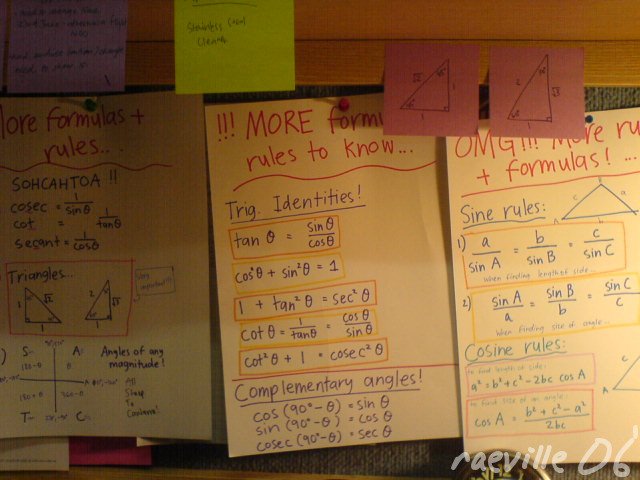 Stainless Steel
Cleaner
√2
1
1
2
√3
1
More formulas +
rules...
SOHCAHTOA !!
cosec = 1/sinθ
cot = 1/tanθ
secant = 1/cosθ
Triangles...
√2
1
1
2
√3
1
Very
important!!
S
A
Angles of any
magnitude!
180-θ
180+θ
360-θ
All
Stations
To
Central!
T
C
!!! MORE formu
rules to know...
Trig. Identities!
tan θ = sinθ/cosθ
cos²θ + sin²θ = 1
1 + tan²θ = sec²θ
cotθ = 1/tanθ = cosθ/sinθ
cot²θ + 1 = cosec²θ
Complementary angles!
cos (90°-θ) = sinθ
sin (90°-θ) = cosθ
cosec (90°-θ) = secθ
OMG!!! More ru
+ formulas! ...
Sine rules:
B
c
a
A
1) a/sin A = b/sin B = c/sin C
When finding length of side...
2) sin A/a = sin B/b = sin C/c
When finding size of angle...
Cosine rules:
to find length of side:
a² = b² + c² - 2bc cos A
to find size of an angle:
cos A = b² + c² - a²/2bc
c
A
raeville 06'